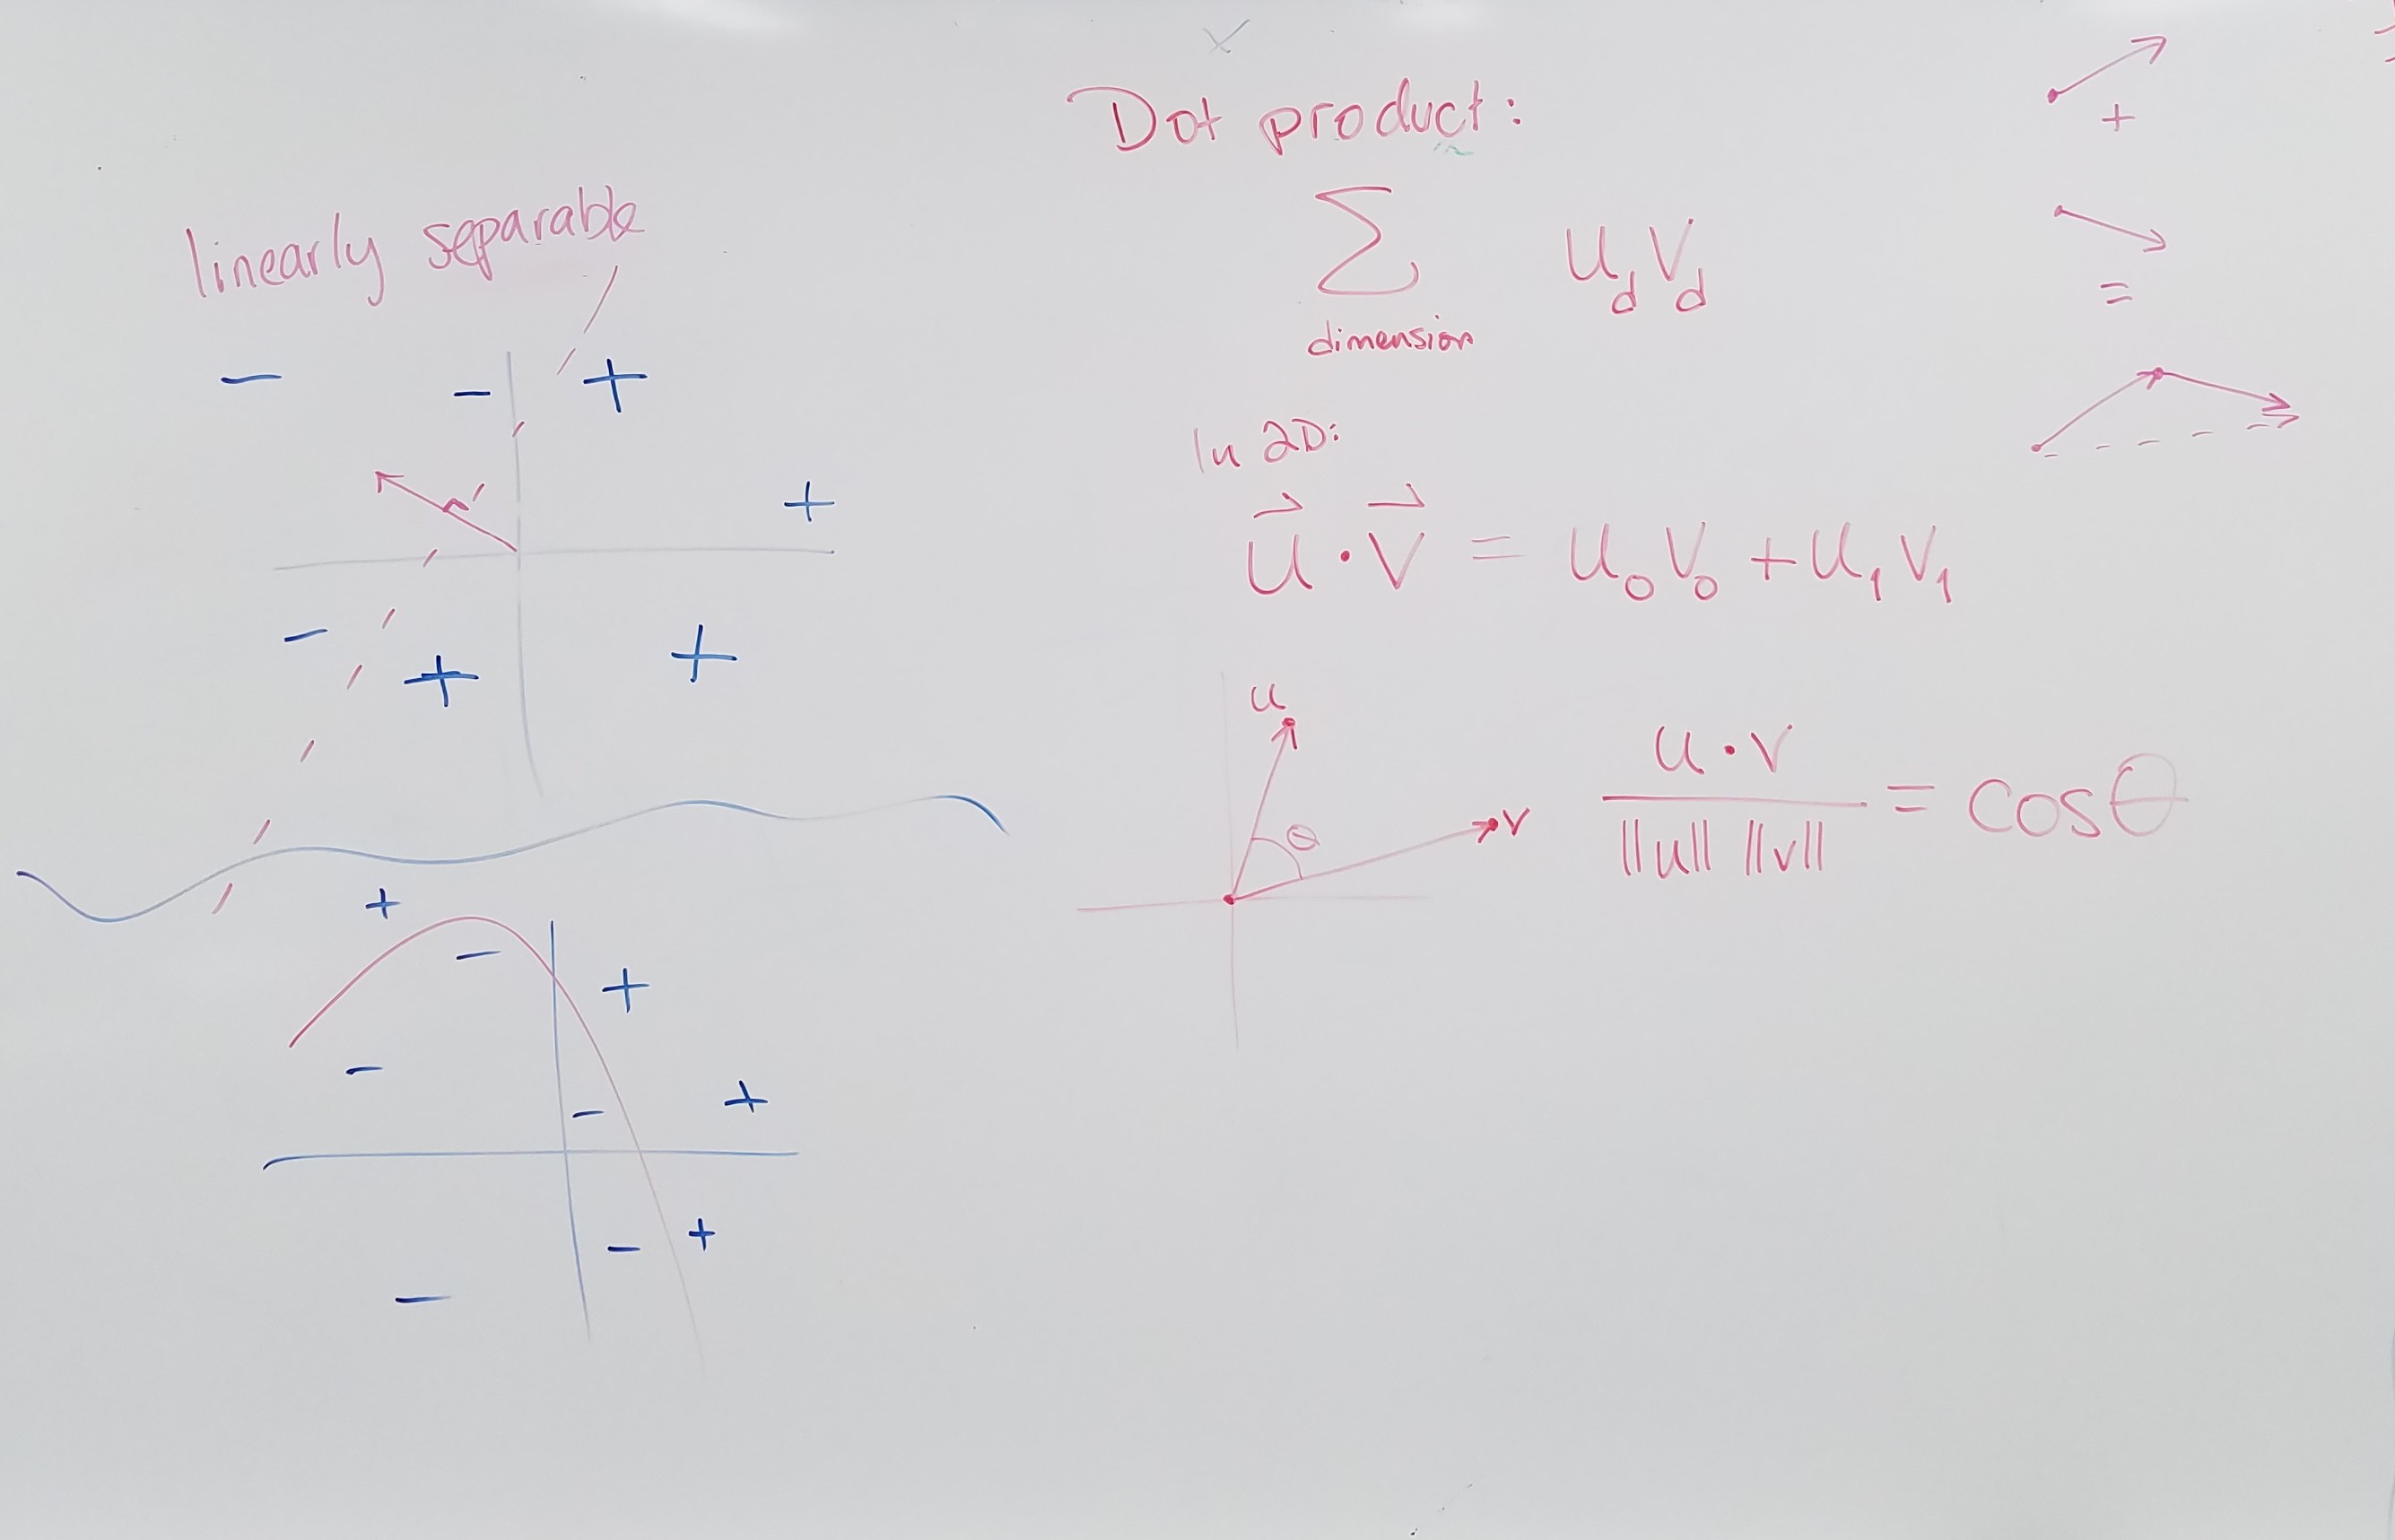 linearly separable
Dot product:
∑ u_d v_d
dimension
In 2D:
u⃗ · v⃗ = u₀v₀ + u₁v₁
u
θ
v
u · v
‖u‖ ‖v‖
= cos θ